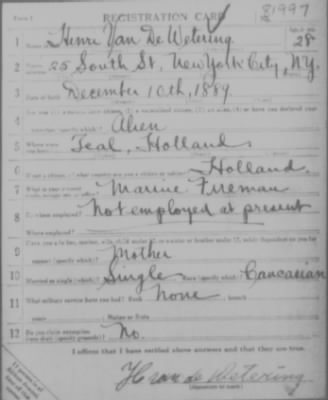 Form 1 REGISTRATION CARD No. 81997
1 Name Henri Van De Wetering Age, in yrs. 28
2 Home address 25 South St., New York City, N.Y.
3 Date of birth December 10th, 1889
4 Are you (1) a natural born citizen, (2) a naturalized citizen, (3) an alien, (4) or have you declared your
intention (specify which)? Alien
5 Where were you born? Teal, Holland
6 If not a citizen, of what country are you a citizen or subject? Holland
7 What is your present trade, occupation, or office? Marine Fireman
8 By whom employed? Not employed at present
Where employed?
9 Have you a father, mother, wife, child under 12, or a sister or brother under 12, solely dependent on you for
support (specify which)? Mother
10 Married or single (which)? Single Race (specify which)? Caucasian
11 What military service have you had? Rank None; branch
years; Nation or State
12 Do you claim exemption from draft (specify grounds)? No.
I affirm that I have verified above answers and that they are true.
H van de Wetering
(Signature or mark)